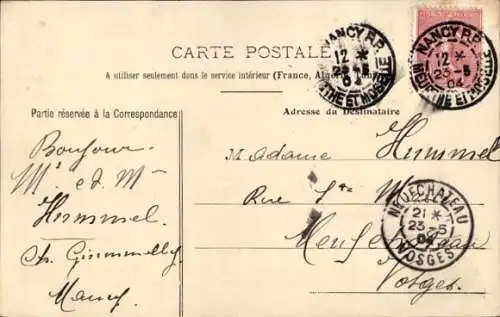 CARTE POSTALE
A utiliser seulement dans le service intérieur (France, Algérie
Partie réservée à la Correspondance
Adresse du Destinataire
NANCY R.P.
12 *
23 -5
04
MEURTHE ET MOSELLE
NANCY R.P.
12 *
23 -5
04
MEURTHE ET MOSELLE
Bonjour
Mr et Me
Hummel
Ch.
Nancy
Madame Hummel
Rue
Neufchateau
Vosges
NEUFCHATEAU
21 *
23 -5
04
VOSGES